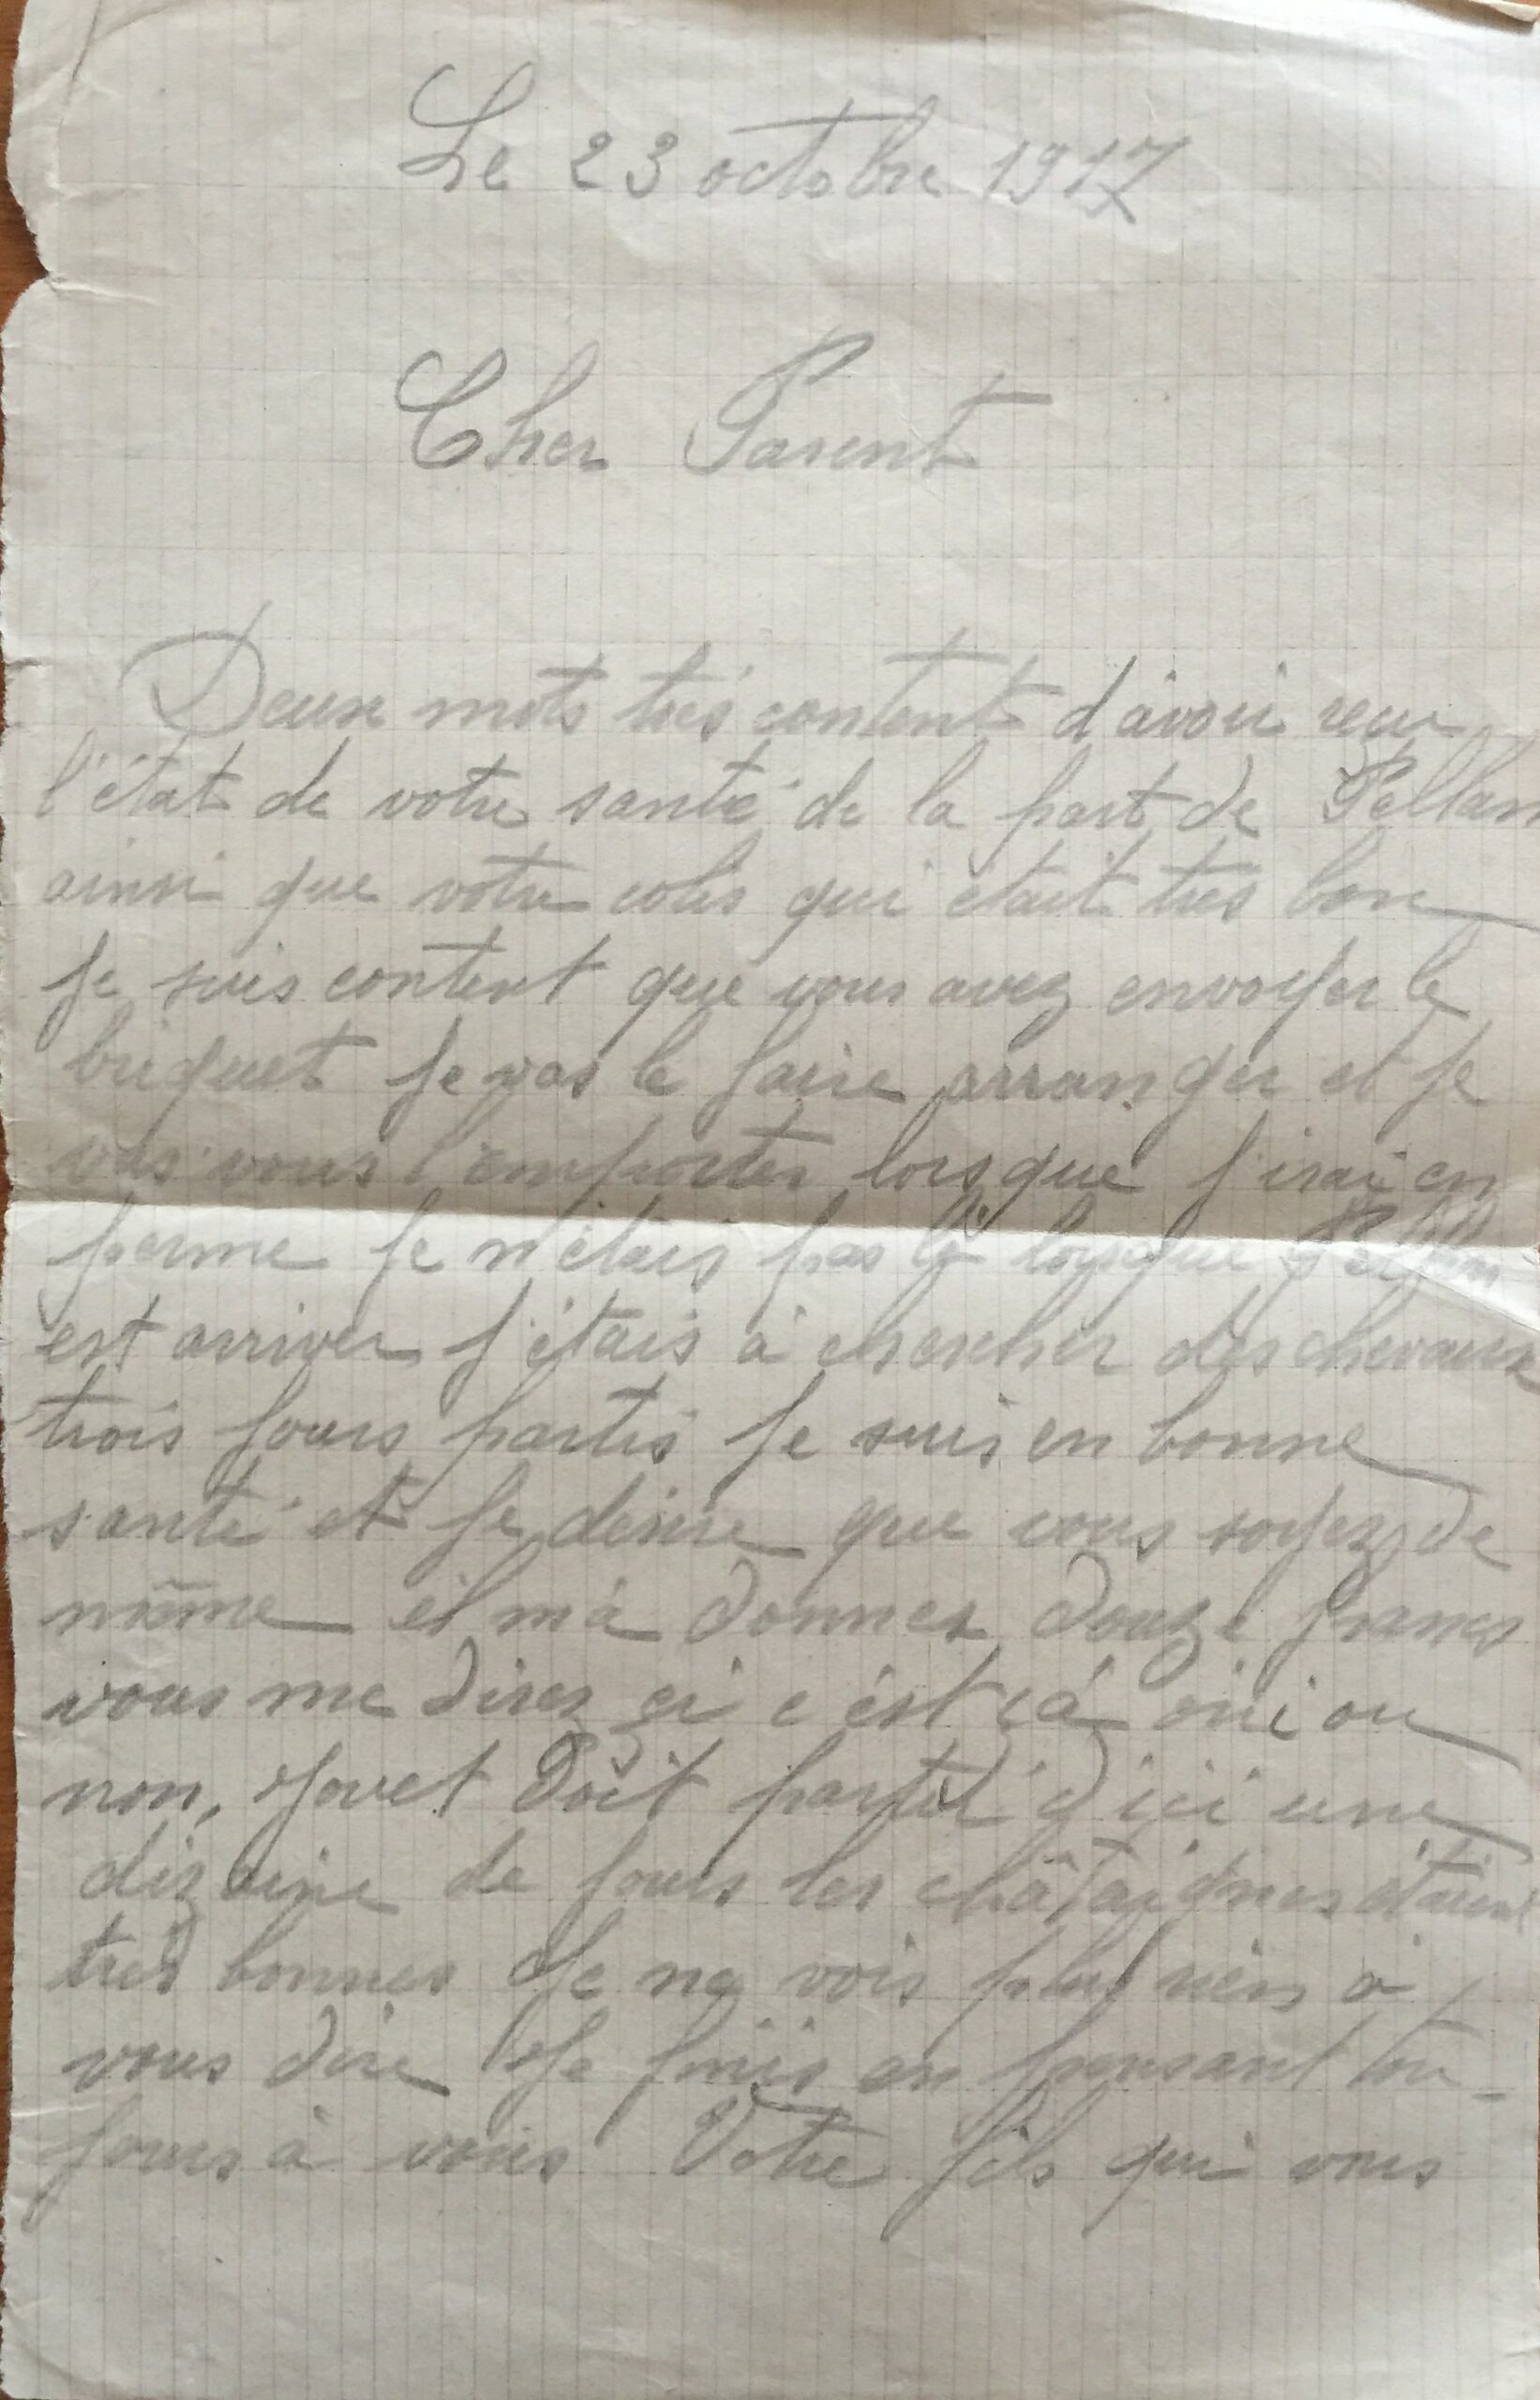 Le 23 octobre 1917
Cher Parent
Deux mots très content d'avoir recu
l'état de votre santé de la part de Pellan
ainsi que votre colis qui était très bon
Je suis content que vous avez envoyer le
briquet Je vas le faire arranger et Je
vas vous l'emporter lorsque J'irai en
perme Je n'étais pas là lorsque Pellan
est arriver J'étais à chercher des chevaux
trois Jours partis Je suis en bonne
santé et Je désire que vous soyez de
même il m'a donner douze francs
vous me direz si c'est çà oui ou
non, Jovet doit partir d'ici une
dizaine de Jours les châtaignes étaient
très bonnes Je ne vois plus rien à
vous dire Je finis en pensant tou-
Jours à vous Votre fils qui vous